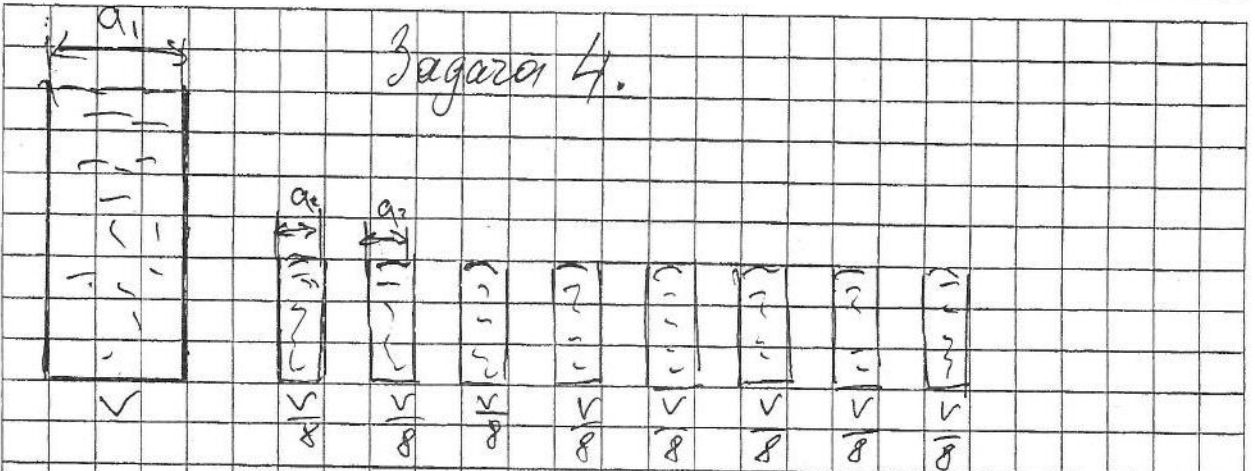 a₁
Задача 4.
a₂ a₂
V V/8 V/8 V/8 V/8 V/8 V/8 V/8 V/8